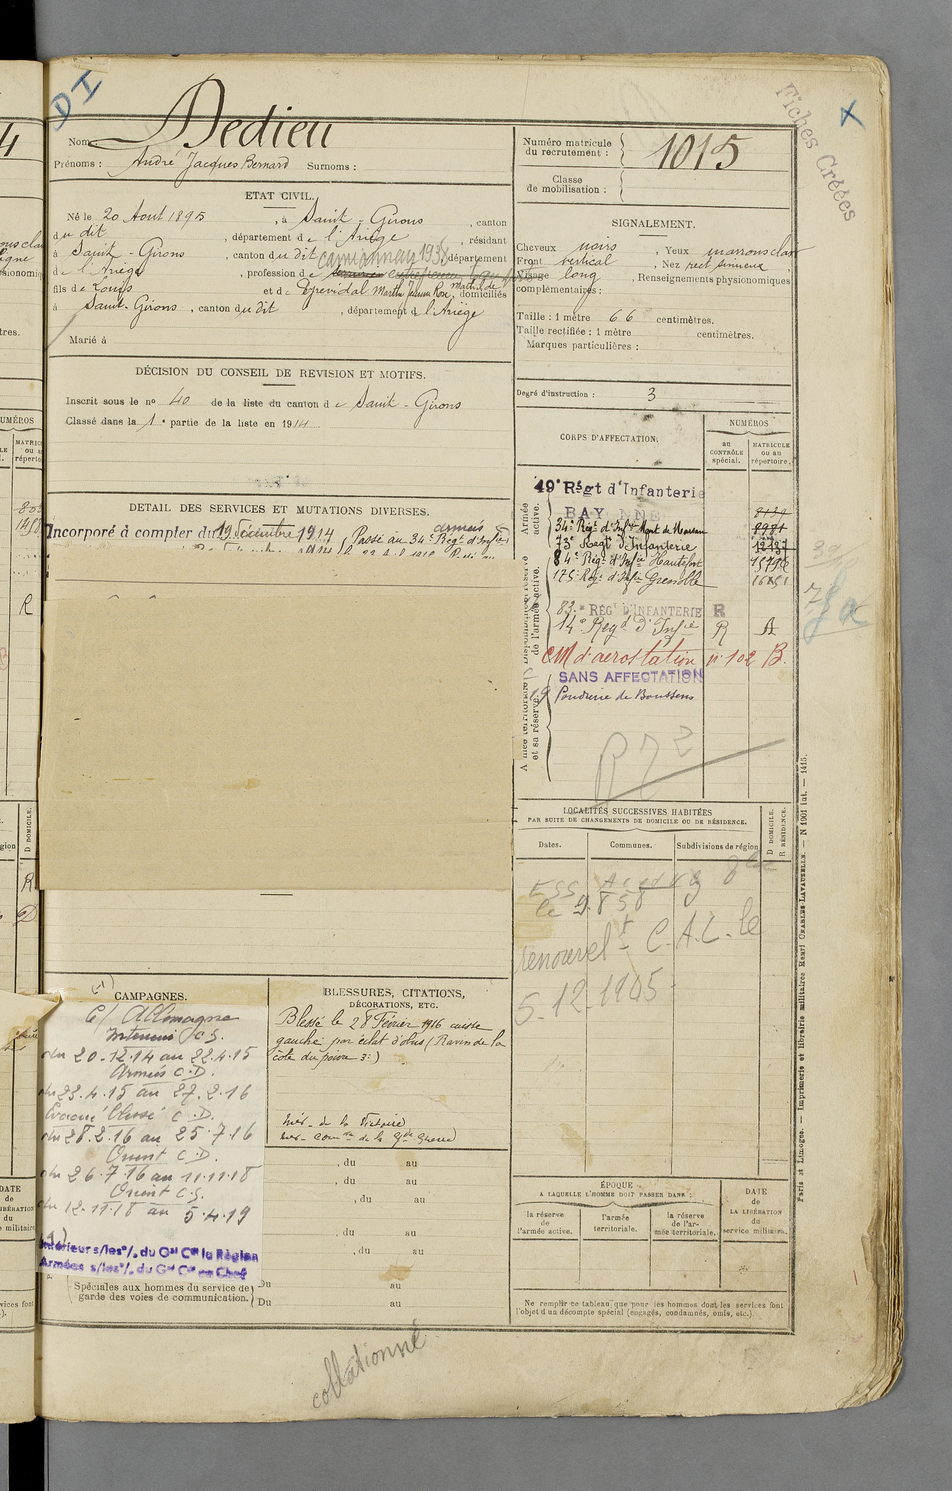 DI
X
Fiches Créées
Nom Dedieu
Prénoms : André Jacques Bernard Surnoms :
Numéro matricule du recrutement : 1015
Classe de mobilisation :
ETAT CIVIL.
Né le 20 Aout 1895, à Saint-Girons, canton
du dit, département de l'Ariège, résidant
à Saint-Girons, canton du dit camionnay 1938 département
de l'Ariège, profession de
fils de Louis et de Eyrevidal Marthe Jeanne Rose Mathilde, domiciliés
à Saint-Girons, canton du dit, département de l'Ariège
Marié à
SIGNALEMENT.
Cheveux noirs, Yeux marrons clair
Front vertical, Nez rect. sinueux
Visage long, Renseignements physionomiques
complémentaires :
Taille : 1 mètre 66 centimètres.
Taille rectifiée : 1 mètre centimètres.
Marques particulières :
Degré d'instruction : 3
DÉCISION DU CONSEIL DE REVISION ET MOTIFS.
Inscrit sous le no 40 de la liste du canton de Saint-Girons
Classé dans la 1e partie de la liste en 1914
DETAIL DES SERVICES ET MUTATIONS DIVERSES.
Incorporé à compter du 19 Décembre 1914 Passé au 34e Régt d'Infie
armées
CORPS D'AFFECTATION.
NUMÉROS
au CONTRÔLE spécial.
MATRICULE OU AU répertoire.
Armée active.
49e Régt d'Infanterie
BAYONNE
34e Régt d'Infie Mont de Marsan 8981
73e Regt d'Infanterie 12137
84e Régt d'Infie Hautefort
175e Régt d'Infie Grenoble
83e RÉGt D'INFANTERIE R
14e Regt d'Infie R A
CM d'aerostation n° 102 B.
SANS AFFECTATION
19 Poudrerie de Boussens
et sa réserve.
LOCALITÉS SUCCESSIVES HABITÉES
PAR SUITE DE CHANGEMENTS DE DOMICILE OU DE RÉSIDENCE.
Dates. Communes. Subdivisions de région
D DOMICILE.
R RÉSIDENCE.
le 9.8.58
renouvelt C.A.C. le
5.12.1945
CAMPAGNES.
C/ Allemagne
Intérieur C.S.
du 20-12-14 au 22.4.15
Armées C.D.
du 23.4.15 au 27.2.16
Evacué blessé C.D.
du 28.2.16 au 25.7.16
Orient C.D.
du 26.7.16 au 11.11.18
Orient C.S.
du 12-11-18 au 5.4.19
Intérieur s/les o/. du Gal Ct la Région
Armées s/les o/. du Gal Ct en Chef
Spéciales aux hommes du service de
garde des voies de communication.
Du au
Du au
BLESSURES, CITATIONS,
DÉCORATIONS, ETC.
Blessé le 28 Février 1916 cuisse
gauche par éclat d'obus (Ravin de la
côte du poivre 3:)
Mér. de la Victoire
Mér. Comve de la Gde Guerre
, du au
, du au
, du au
, du au
, du au
ÉPOQUE
A LAQUELLE L'HOMME DOIT PASSER DANS :
la réserve de l'armée active.
l'armée territoriale.
la réserve de l'armée territoriale.
DATE de LA LIBÉRATION du service militaire.
Ne remplir ce tableau que pour les hommes dont les services font
l'objet d'un décompte spécial (engagés, condamnés, omis, etc.).
Paris et Limoges. — Imprimerie et librairie militaires Henri CHARLES-LAVAUZELLE. — N 1901 int. — 1415.
collationné